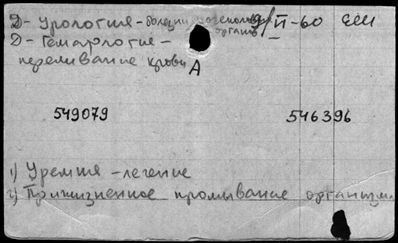 Д- Урология - болезни мочеполов. органов 9/VI-60 ЕШ
Д- Гематология -
переливание крови А
549079 546396
1) Уремия - лечение
2) Прижизненное промывание организма